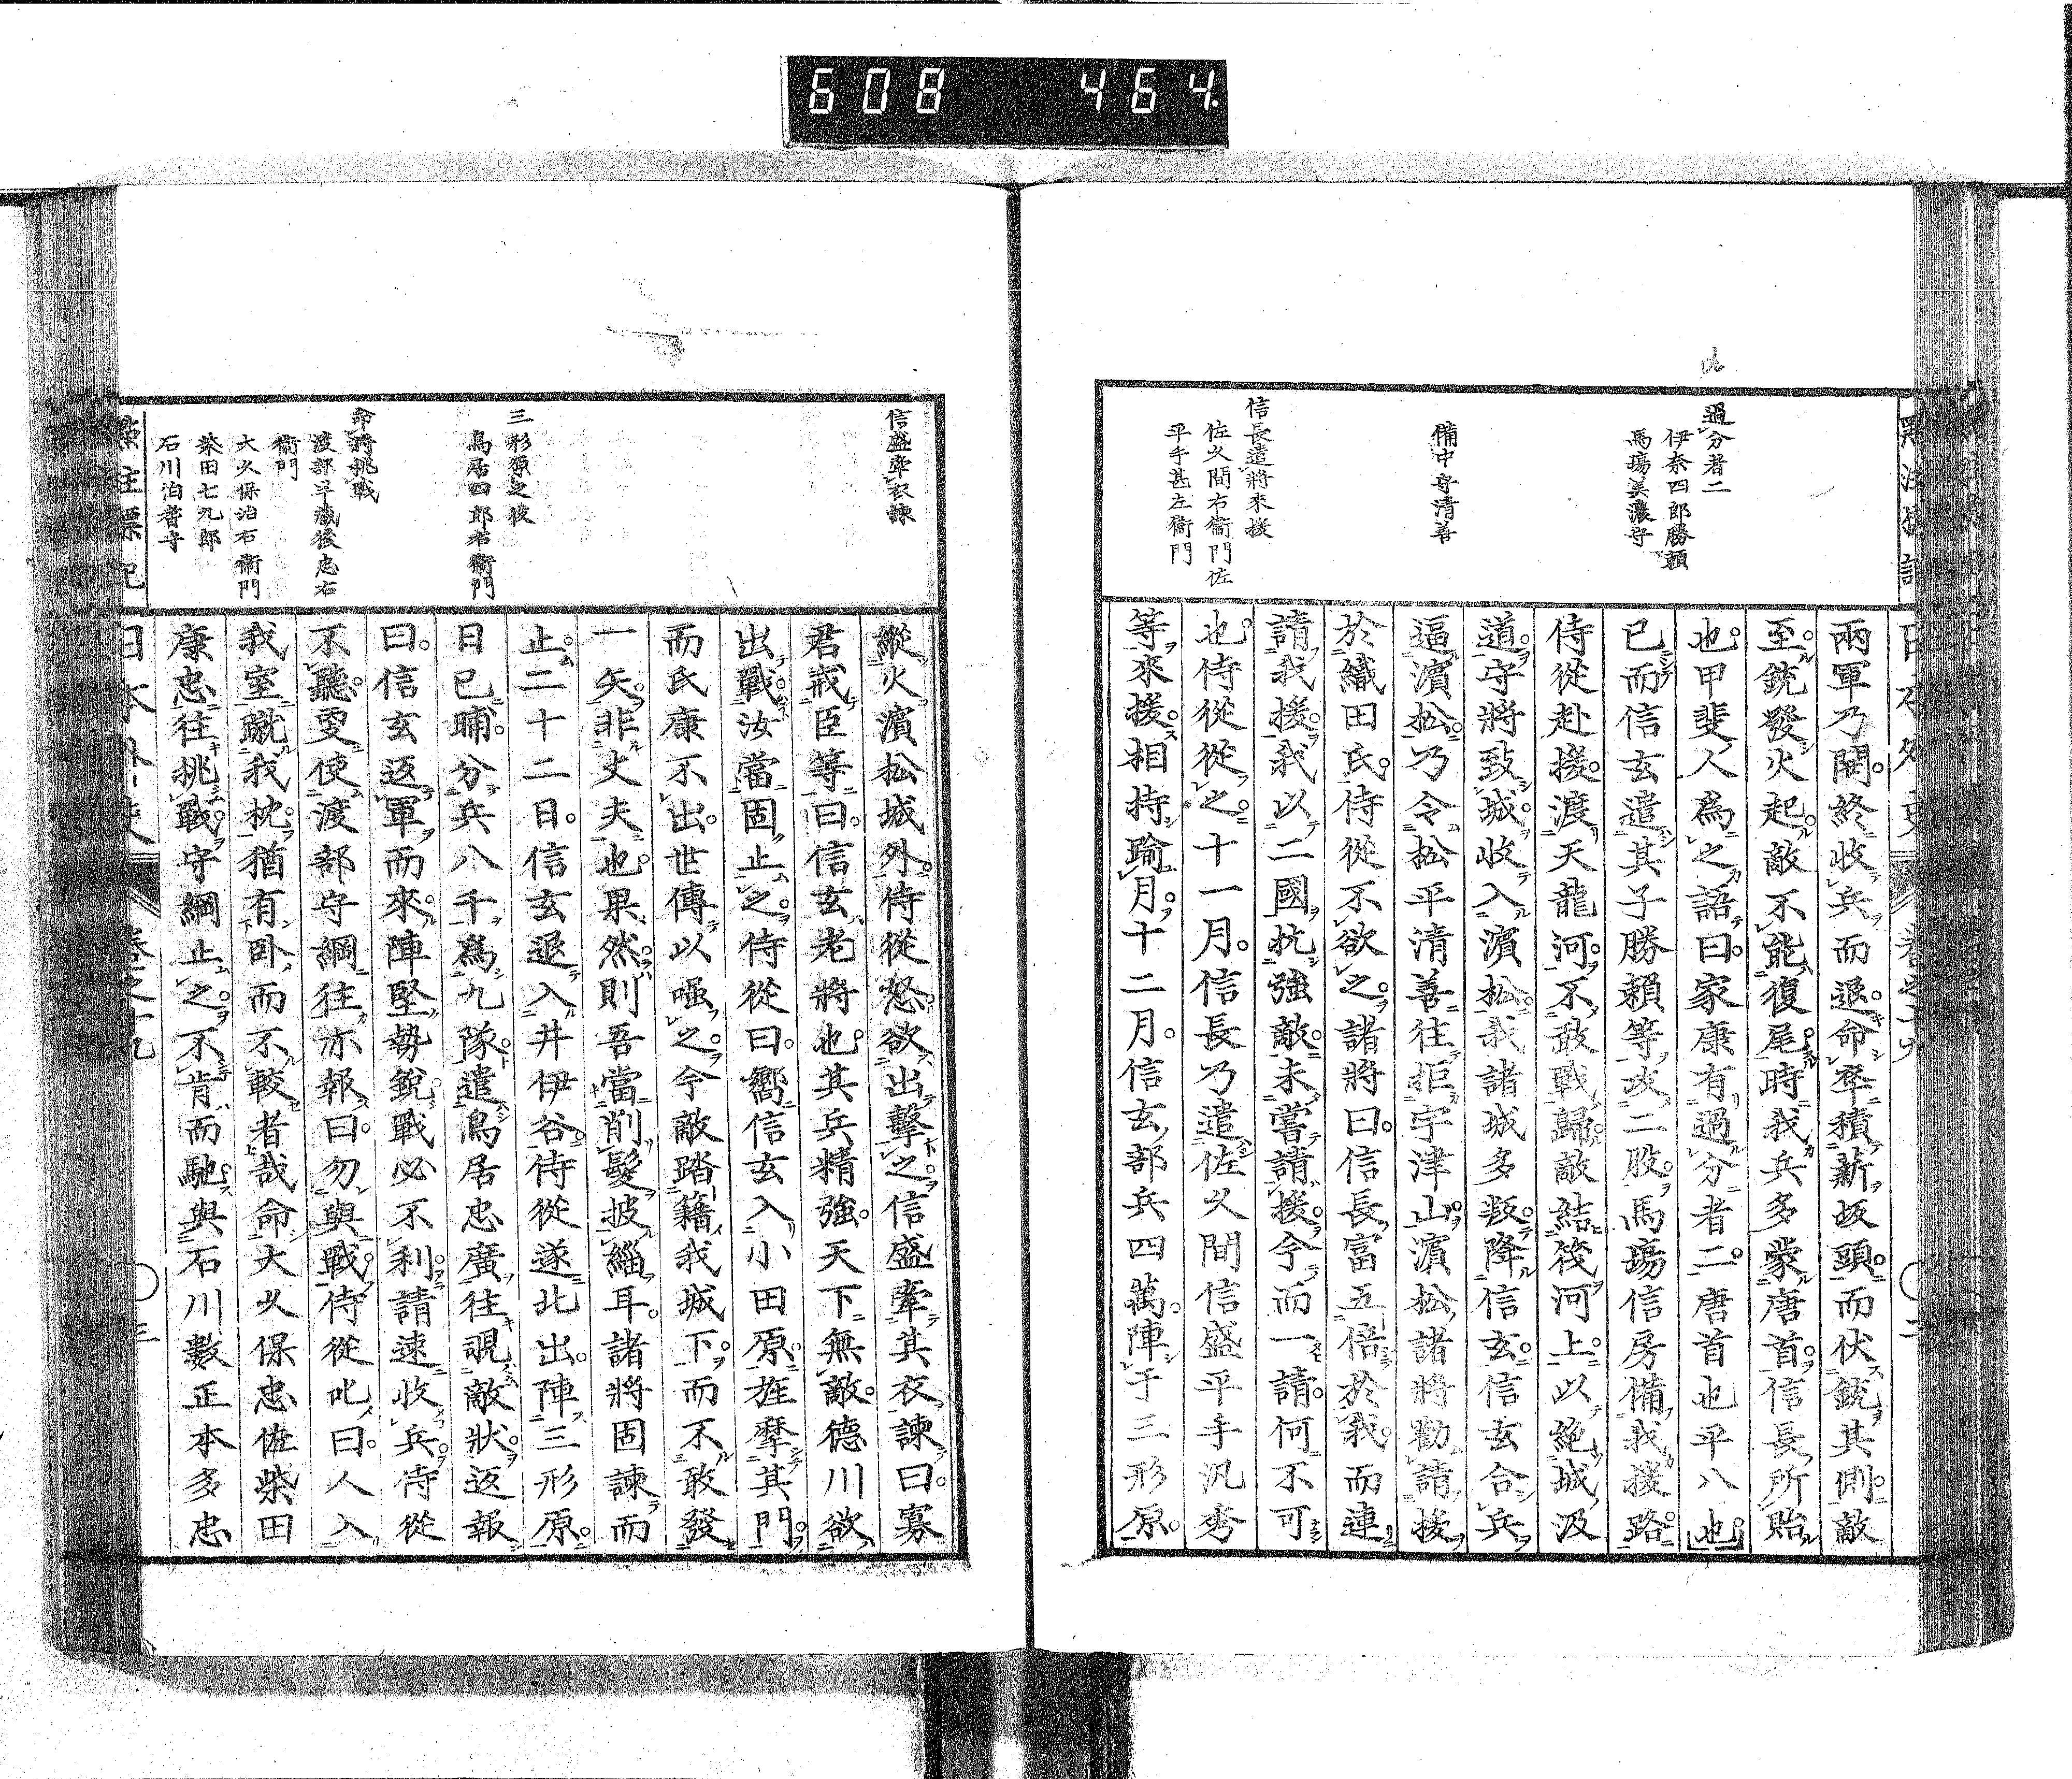 608 464.
過分者二
伊奈四郎勝頼
馬塲美濃守
備中守清善
信長遣將來援
佐久間右衞門佐
平手甚左衞門
兩軍乃鬨。終收兵而退。命卒積薪坂頭。而伏銃其側。敵
至。銃發火起。敵不能復尾。時我兵多蒙唐首。信長所貽
也。甲斐人爲之語曰。家康有過分者二。唐首也平八也。
已而信玄遣其子勝賴等。攻二股。馬塲信房備我援路。
侍從赴援。渡天龍河。不敢戰歸。敵結筏河上。以絶城汲
道。守將致城。收入濱松。我諸城多叛降信玄。信玄合兵。
逼濱松。乃令松平清善往拒宇津山。濱松諸將勸請援
於織田氏。侍從不欲之。諸將曰。信長富五倍於我。而連
請我援。我以二國抗強敵。未嘗請援。今而一請。何不可
也。侍從從之。十一月。信長乃遣佐久間信盛平手汎秀
等來援。相持踰月。十二月。信玄部兵四萬。陣于三形原。
信盛牽衣諫
三形源之役
鳥居四郎右衞門
命將挑戰
渡部半藏後忠右
衞門
大久保治右衞門
柴田七九郎
石川伯耆守
縱火濱松城外。侍從怒欲出擊之。信盛牽其衣諫曰。寡
君戒臣等曰。信玄老將也。其兵精強。天下無敵。德川欲
出戰。汝當固止之。侍從曰。嚮信玄入小田原。旌摩其門。
而氏康不出。世傳以嗤之。今敵踏籍我城下。而不敢發
一矢。非丈夫也。果然則吾當削髮披緇耳。諸將固諫而
止。二十二日。信玄退入井伊谷。侍從遂北出。陣三形原。
日已晡。分兵八千爲九隊。遣鳥居忠廣往覘敵狀。返報
曰。信玄返軍而來。陣堅勢銳。戰必不利。請速收兵。侍從
不聽。更使渡部守綱往。亦報曰。勿與戰。侍從叱曰。人入
我室蹴我枕。猶有臥而不較者哉。命大久保忠佐柴田
康忠往挑戰。守綱止之。不肯而馳。與石川數正本多忠